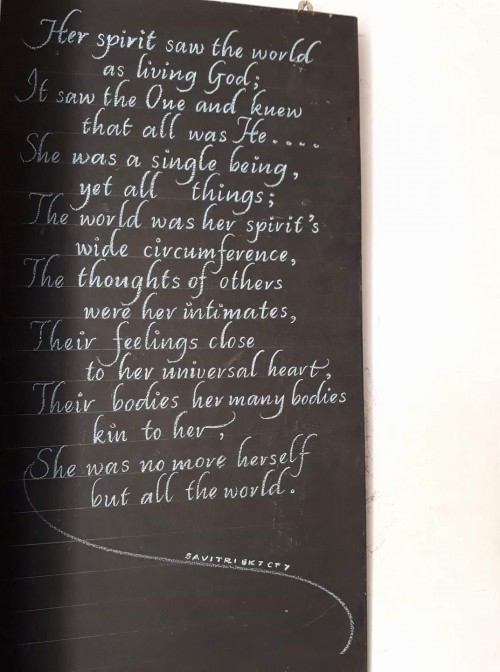 Her spirit saw the world
as living God;
It saw the One and knew
that all was He....
She was a single being,
yet all things;
The world was her spirit's
wide circumference,
The thoughts of others
were her intimates,
Their feelings close
to her universal heart,
Their bodies her many bodies
kin to her,
She was no more herself
but all the world.
SAVITRI BK7 CT7